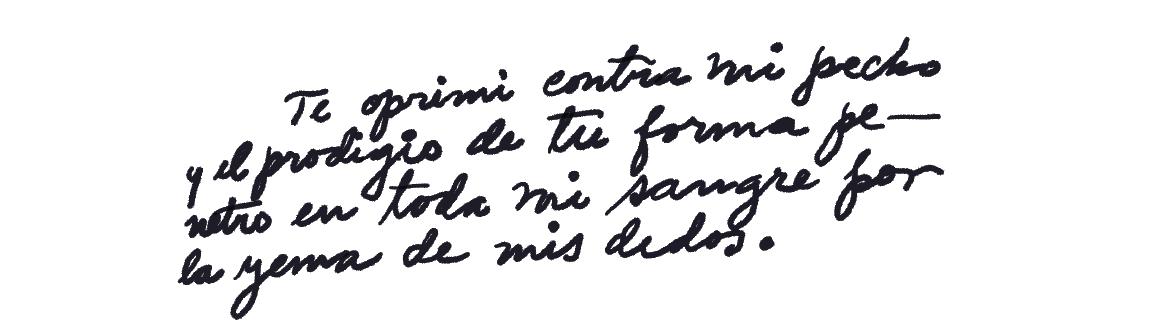 Te oprimi contra mi pecho
y el prodigio de tu forma pe—
netro en toda mi sangre por
la yema de mis dedos.